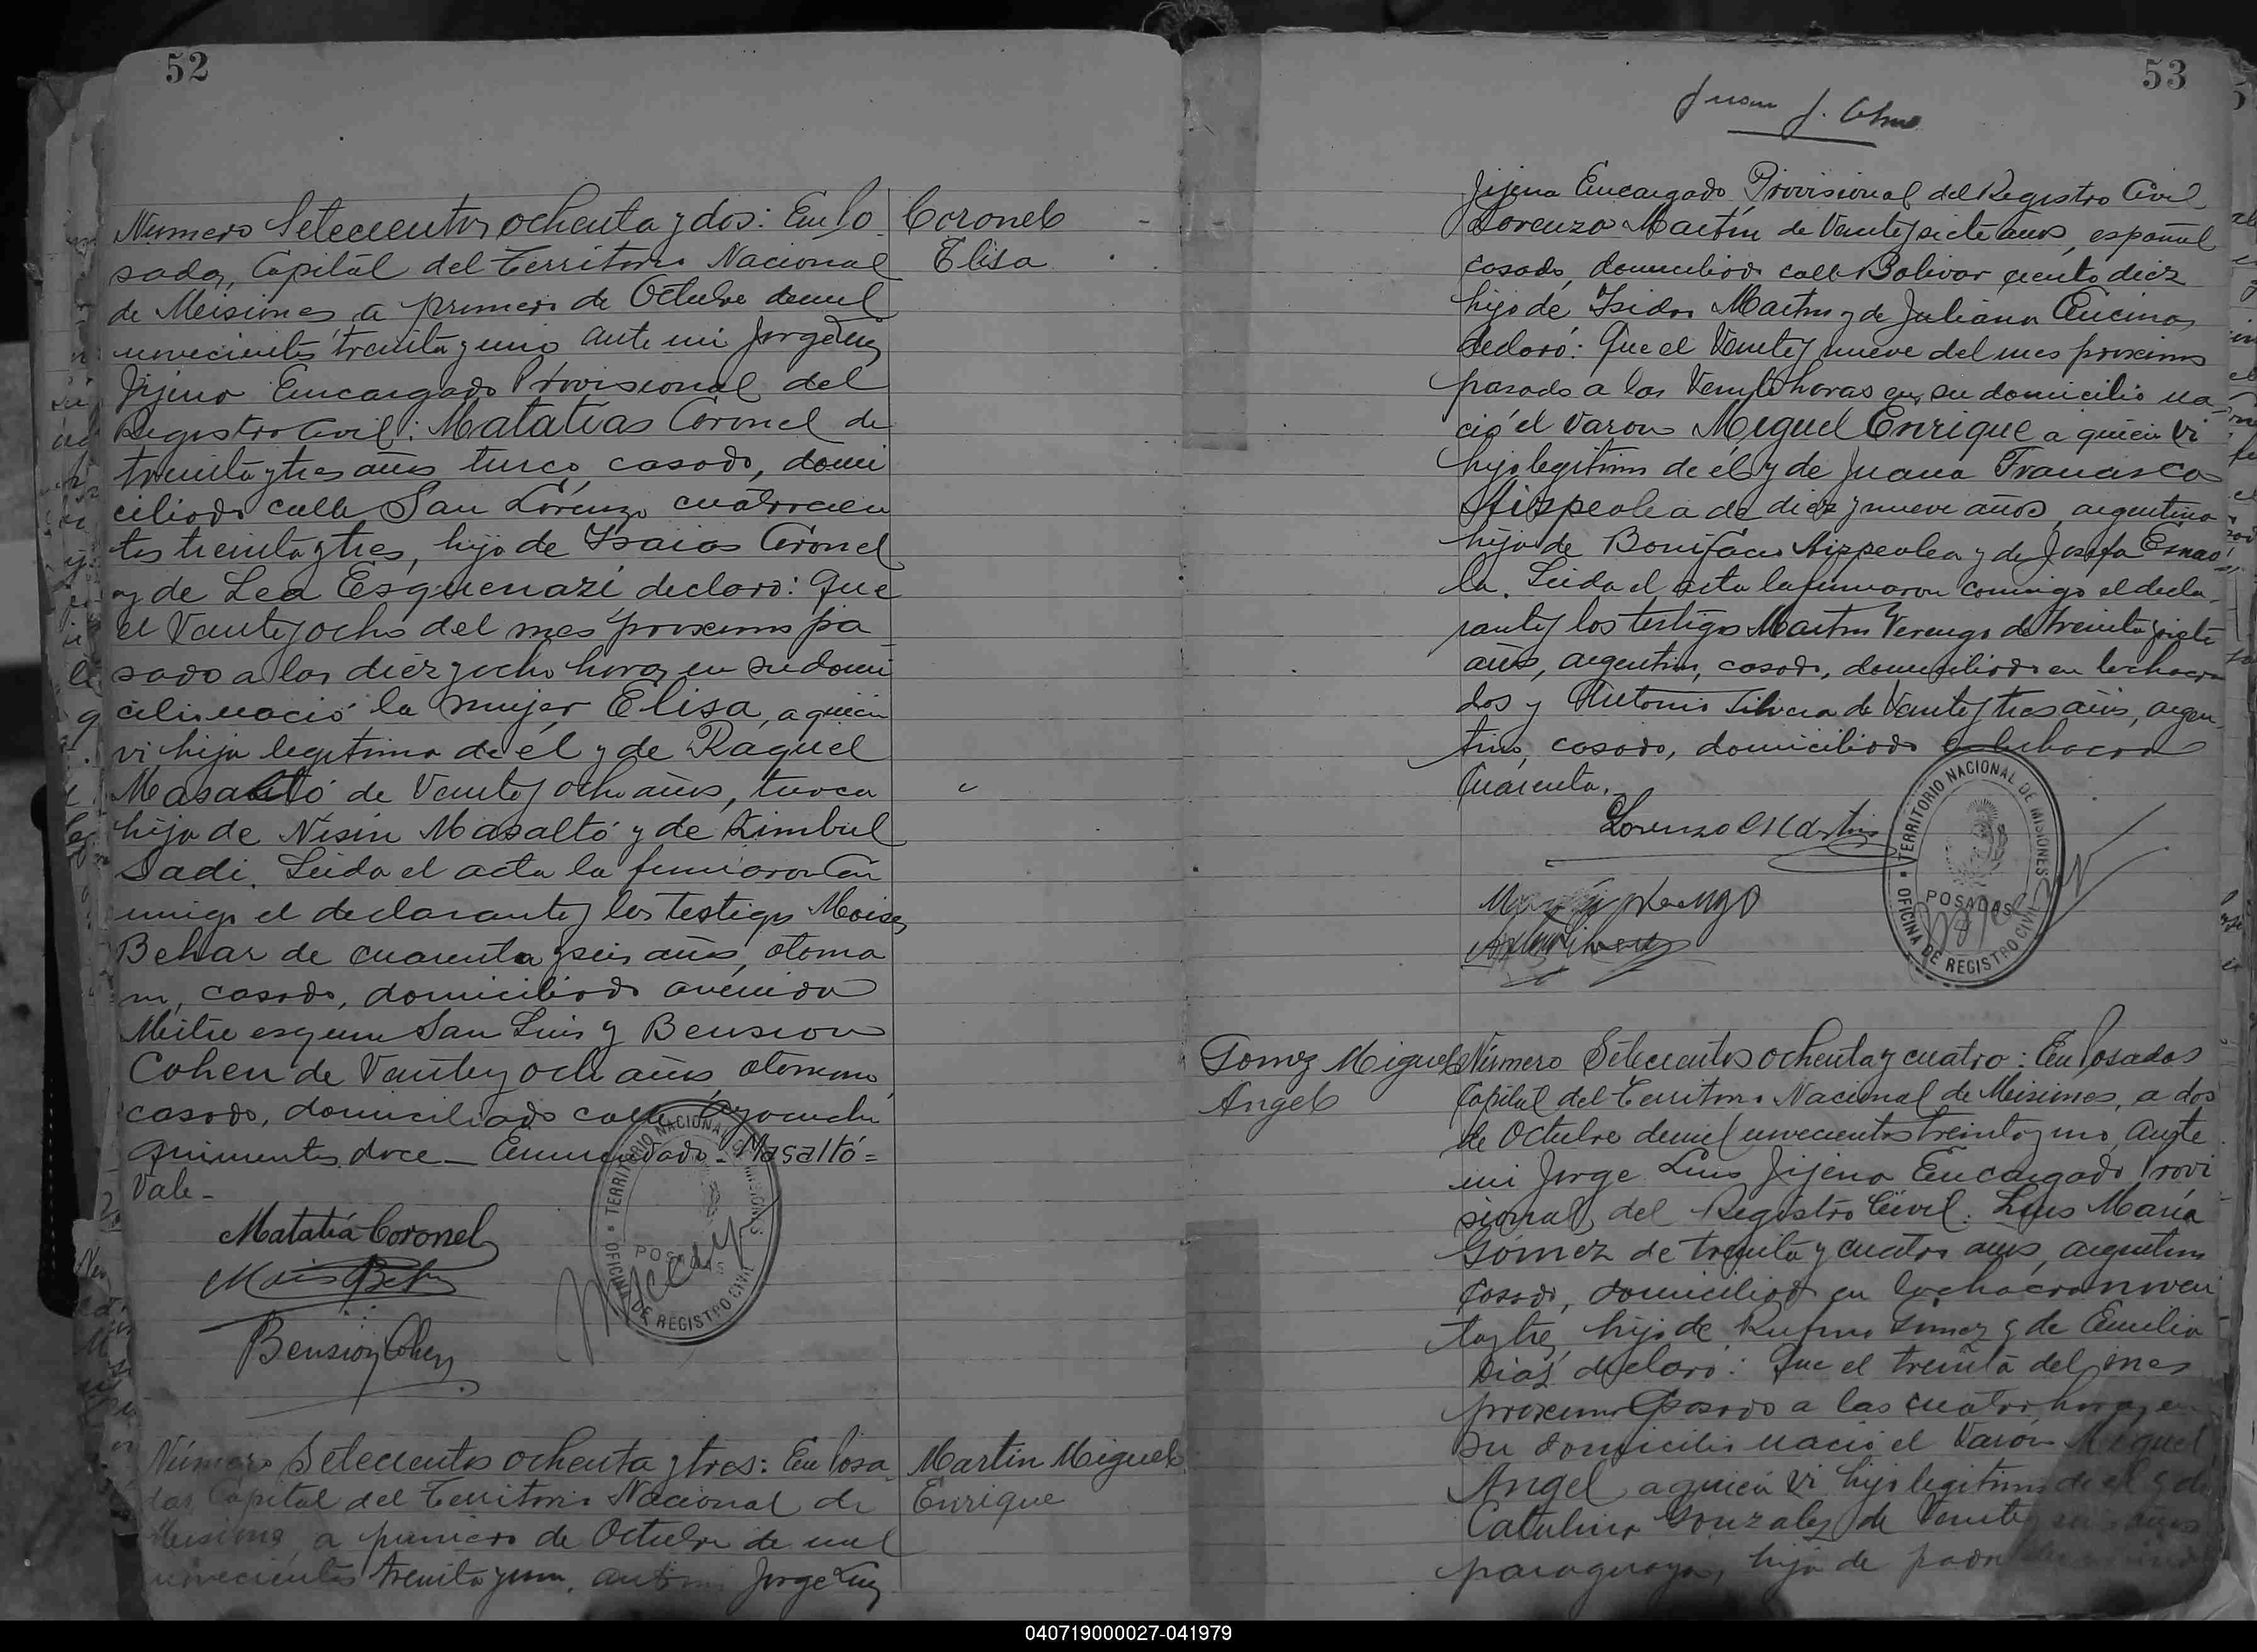 52
Numero Setecientos ochenta y dos: En Po
sadas, Capital del Territorio Nacional
de Misiones a primero de Octubre de mil
novecientos treinta y uno ante mi Jorge Luis
Jijena Encargado Provisional del
Registro Civil: Matatias Coronel de
treinta y tres años turco, casado, domi
ciliado calle San Lorenzo cuatrocien
tos treinta y tres, hijo de Isaias Coronel
y de Lea Esquenazi declaro: Que
el Veinte y ocho del mes proximo pa
sado a las diez y ocho horas en su domi
cilio nació la mujer Elisa, a quien
vi hija legitima de él y de Raquel
Masaltó de Veinte y ocho años, turca
hija de Nisin Masaltó y de Kimbul
Sadi. Leida el acta la firmaron con
migo el declarante y los testigos Moises
Behar de cuarenta y seis años, otoma
no, casado, domiciliado avenida
Mitre esquina San Luis y Bension
Cohen de Veinte y ocho años otomano
casado, domiciliado calle Ayacucho
quinientos doce - Enmendado - Masaltó =
Vale -
Coronel
Elisa
Matatia Coronel
Bension Cohen
TERRITORIO NACIONAL DE MISIONES
POSADAS
OFICINA DE REGISTRO CIVIL
Número Setecientos ochenta y tres: En Posa
das, Capital del Territorio Nacional de
Misiones, a primero de Octubre de mil
novecientos treinta y uno, ante mi Jorge Luis
Martin Miguel
Enrique
53
Juan J.
Jijena Encargado Provisional del Registro Civil
Lorenzo Martín de Veinte y siete años, español
casado, domiciliado calle Bolivar ciento diez
hijo de Isidro Martin y de Juliana Encinas
declaró: Que el Veinte y nueve del mes proximo
pasado a las Veinte horas en su domicilio na-
ció el Varon Miguel Enrique a quien vi
hijo legitimo de él y de Juana Francisca
Aizpeolea de diez y nueve años, argentina
hija de Bonifacio Aizpeolea y de Josefa Esnao
la. Leida el acta la firmaron conmigo el decla-
rante y los testigos Martin Verengo de treinta y siete
años, argentino, casado, domiciliado en la chacra
dos y Antonio Silvera de Veinte y tres años, argen
tino, casado, domiciliado en la chacra
Cuarenta.
Lorenzo Martin
TERRITORIO NACIONAL DE MISIONES
POSADAS
OFICINA DE REGISTRO CIVIL
Gomez Miguel
Angel
Número Setecientos ochenta y cuatro: En Posadas
Capital del Territorio Nacional de Misiones, a dos
de Octubre de mil novecientos treinta y uno, ante
mi Jorge Luis Jijena Encargado Provi
sional del Registro Civil: Luis María
Gómez de treinta y cuatro años, argentino
casado, domiciliado en la chacra noven
ta y tres, hijo de Rufino Gomez y de Emilia
Diaz declaró: Que el treinta del mes
proximo pasado a las cuatro horas en
su domicilio nació el Varon Miguel
Angel a quien vi hijo legitimo de el y de
Catalina Gonzalez de Veinte y seis años
paraguaya, hija de padre
040719000027-041979